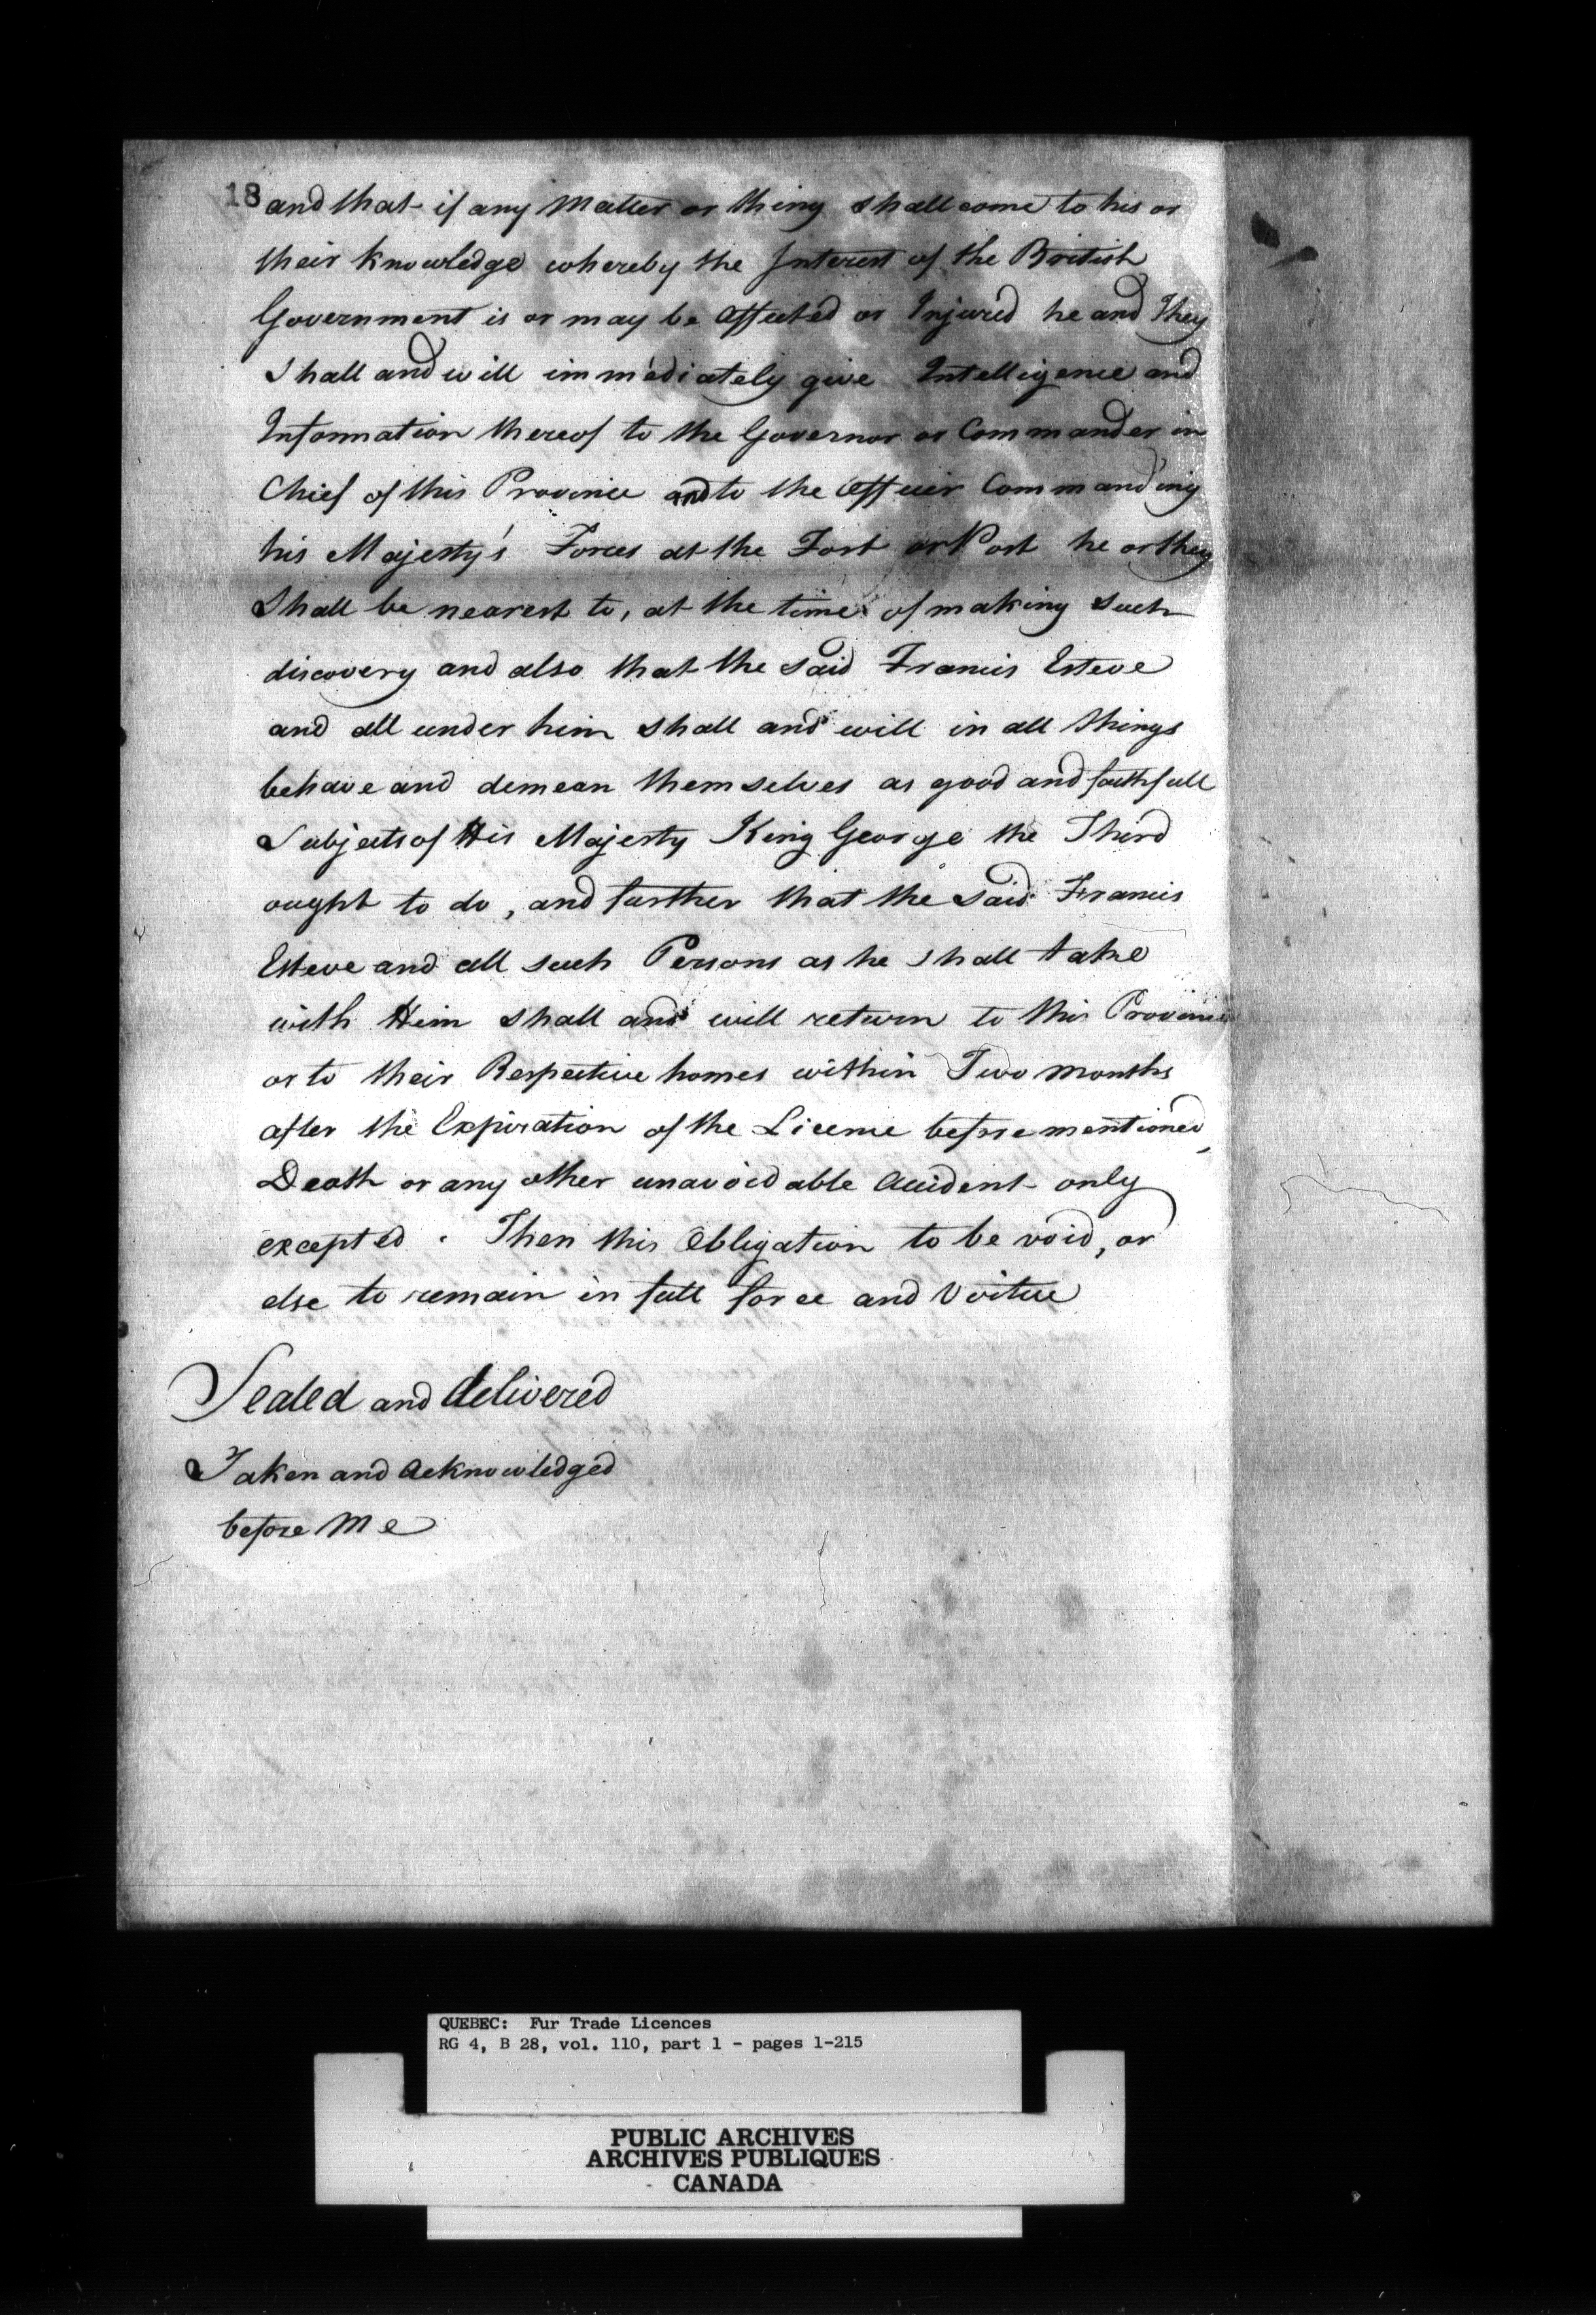 18
and that if any Matter or thing shall come to his or
their knowledge whereby the Interest of the British
Government is or may be affected or Injured he and They
Shall and will immediately give Intelligence and
Information thereof to the Governor or Commander in
Chief of this Province and to the Officer Commanding
his Majesty's Forces at the Fort or Post he or they
Shall be nearest to, at the time of making such
discovery and also that the said Francis Esteve
and all under him shall and will in all things
behave and demean themselves as good and faithfull
Subjects of His Majesty King George the Third
ought to do, and further that the said Francis
Esteve and all such Persons as he shall take
with Him shall and will return to this Province
or to their Respective homes within Two Months
after the Expiration of the License before mentioned,
Death or any other unavoidable Accident only
excepted. Then this Obligation to be void, or
else to remain in full force and Virtue
Sealed and delivered
Taken and Acknowledged
before Me
QUEBEC: Fur Trade Licences
RG 4, B 28, vol. 110, part 1 - pages 1-215
PUBLIC ARCHIVES
ARCHIVES PUBLIQUES
CANADA